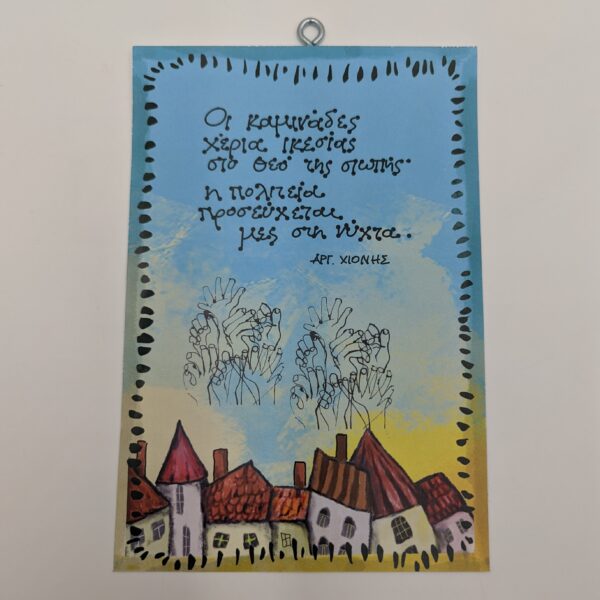 Οι καμινάδες
χέρια ικεσίας
στο θεό της σιωπής·
η πολιτεία
προσεύχεται
μες στη νύχτα..
ΑΡΓ. ΧΙΟΝΗΣ